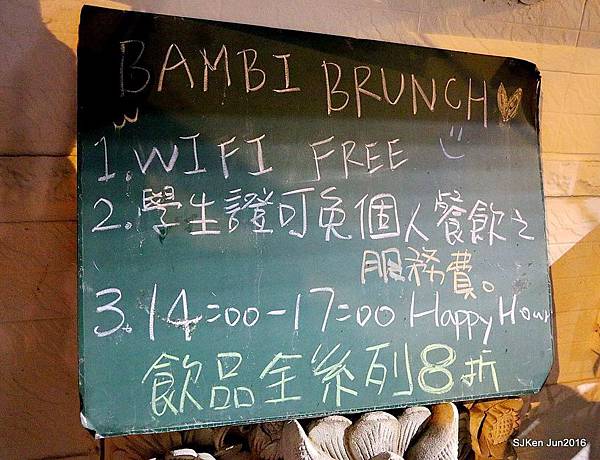 BAMBI BRUNCH
1. WIFI FREE
2. 學生證可免個人餐飲之
服務費。
3. 14:00-17:00 Happy Hour
飲品全系列8折
SJKen Jun2016